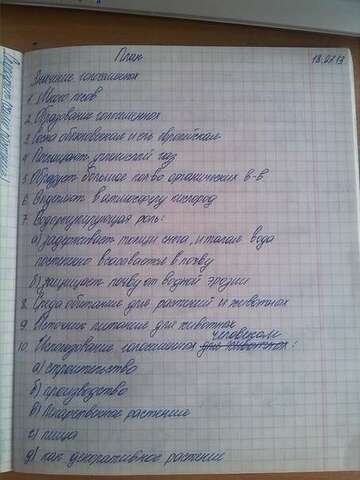 План 18.07.13
Значение голосеменных
1. Много лесов
2. Образование голосеменных
3. Сосна обыкновенная и ель европейская
4. Поглощают углекислый газ
5. Образуют большое кол-во органических в-в
6. Выделяют в атмосферу кислород
7. Водорегулирующая роль:
а) задерживает таяние снега, и талая вода
постепенно всасывается в почву
б) защищает почву от водной эрозии
8. Среда обитания для растений и животных
9. Источник питания для животных
человеком
10. Использование голосеменных для животных:
а) строительство
б) производство
в) Лекарственное растение
г) пища
д) как декоративное растение